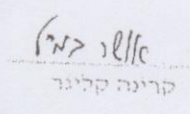 אושר במייל
קרינה קלינר